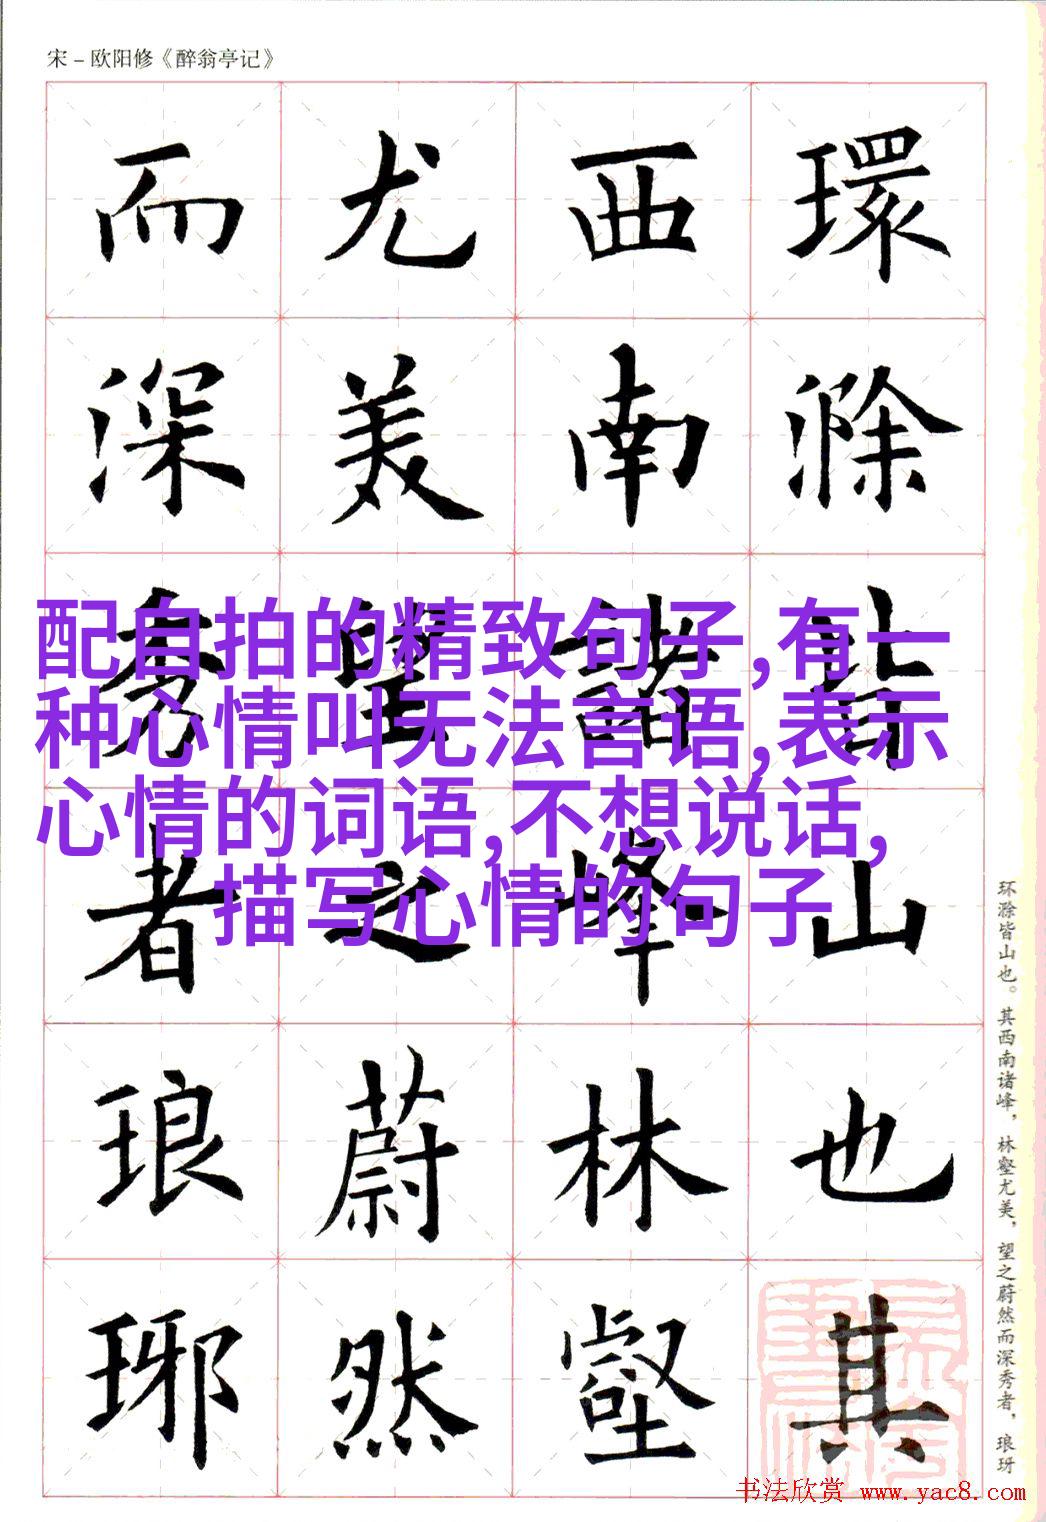 宋－欧阳修《醉翁亭记》
環滁皆山也其
西南諸峰林壑
尤美望之蔚然
而深秀者琅琊
配自拍的精致句子,有一
种心情叫无法言语,表示
心情的词语,不想说话,
描写心情的句子
环滁皆山也。其西南诸峰，林壑尤美，望之蔚然而深秀者，琅玡
书法欣赏 www.yac8.com